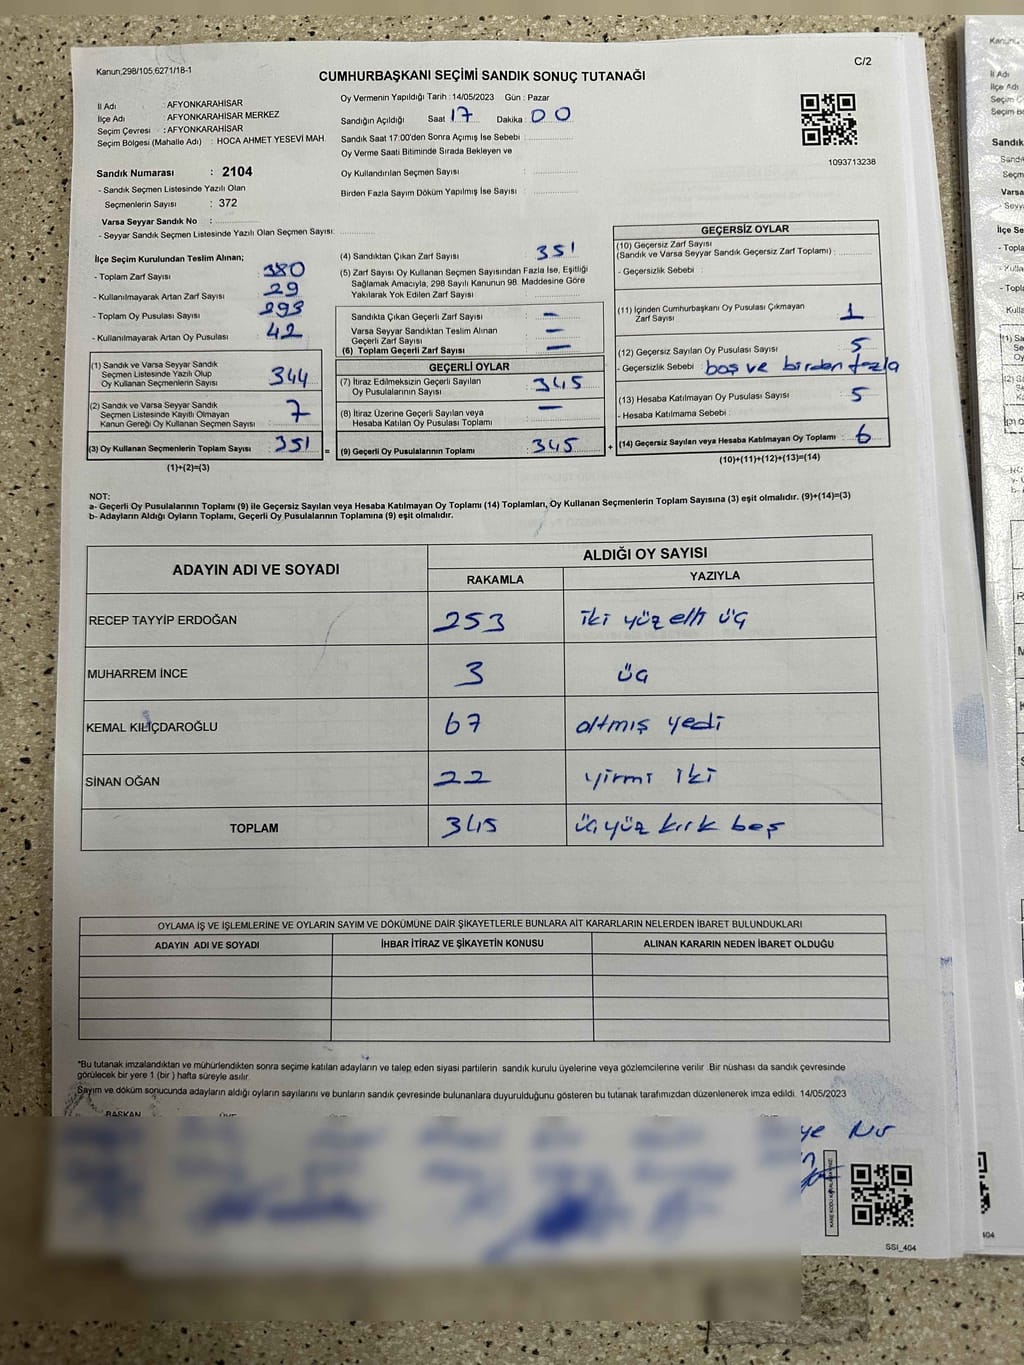 Kanun;298/105,6271/18-1
C/2
CUMHURBAŞKANI SEÇİMİ SANDIK SONUÇ TUTANAĞI
İl Adı : AFYONKARAHİSAR
İlçe Adı : AFYONKARAHİSAR MERKEZ
Seçim Çevresi : AFYONKARAHİSAR
Seçim Bölgesi (Mahalle Adı) : HOCA AHMET YESEVİ MAH.
Sandık Numarası : 2104
- Sandık Seçmen Listesinde Yazılı Olan
Seçmenlerin Sayısı : 372
Varsa Seyyar Sandık No :
- Seyyar Sandık Seçmen Listesinde Yazılı Olan Seçmen Sayısı:
Oy Vermenin Yapıldığı Tarih : 14/05/2023 Gün : Pazar
Sandığın Açıldığı Saat 17 Dakika 00
Sandık Saat 17:00'den Sonra Açımış İse Sebebi :
Oy Verme Saati Bitiminde Sırada Bekleyen ve
Oy Kullandırılan Seçmen Sayısı :
Birden Fazla Sayım Döküm Yapılmış İse Sayısı :
1093713238
İlçe Seçim Kurulundan Teslim Alınan;
- Toplam Zarf Sayısı : 380
- Kullanılmayarak Artan Zarf Sayısı : 29
- Toplam Oy Pusulası Sayısı : 393
- Kullanılmayarak Artan Oy Pusulası : 42
(1) Sandık ve Varsa Seyyar Sandık
Seçmen Listesinde Yazılı Olup
Oy Kullanan Seçmenlerin Sayısı : 344
(2) Sandık ve Varsa Seyyar Sandık
Seçmen Listesinde Kayıtlı Olmayan
Kanun Gereği Oy Kullanan Seçmen Sayısı : 7
(3) Oy Kullanan Seçmenlerin Toplam Sayısı : 351
(1)+(2)=(3)
(4) Sandıktan Çıkan Zarf Sayısı : 351
(5) Zarf Sayısı Oy Kullanan Seçmen Sayısından Fazla İse, Eşitliği
Sağlamak Amacıyla, 298 Sayılı Kanunun 98. Maddesine Göre
Yakılarak Yok Edilen Zarf Sayısı :
Sandıkta Çıkan Geçerli Zarf Sayısı : —
Varsa Seyyar Sandıktan Teslim Alınan
Geçerli Zarf Sayısı : —
(6) Toplam Geçerli Zarf Sayısı : —
GEÇERLİ OYLAR
(7) İtiraz Edilmeksizin Geçerli Sayılan
Oy Pusulalarının Sayısı : 345
(8) İtiraz Üzerine Geçerli Sayılan veya
Hesaba Katılan Oy Pusulası Toplamı : —
= (9) Geçerli Oy Pusulalarının Toplamı : 345 +
GEÇERSİZ OYLAR
(10) Geçersiz Zarf Sayısı
(Sandık ve Varsa Seyyar Sandık Geçersiz Zarf Toplamı) :
- Geçersizlik Sebebi :
(11) İçinden Cumhurbaşkanı Oy Pusulası Çıkmayan
Zarf Sayısı : 1
(12) Geçersiz Sayılan Oy Pusulası Sayısı : 5
- Geçersizlik Sebebi : boş ve birden fazla
(13) Hesaba Katılmayan Oy Pusulası Sayısı : 5
- Hesaba Katılmama Sebebi :
(14) Geçersiz Sayılan veya Hesaba Katılmayan Oy Toplamı : 6
(10)+(11)+(12)+(13)=(14)
NOT:
a- Geçerli Oy Pusulalarının Toplamı (9) ile Geçersiz Sayılan veya Hesaba Katılmayan Oy Toplamı (14) Toplamları, Oy Kullanan Seçmenlerin Toplam Sayısına (3) eşit olmalıdır. (9)+(14)=(3)
b- Adayların Aldığı Oyların Toplamı, Geçerli Oy Pusulalarının Toplamına (9) eşit olmalıdır.
ADAYIN ADI VE SOYADI ALDIĞI OY SAYISI
RAKAMLA YAZIYLA
RECEP TAYYİP ERDOĞAN 253 iki yüz elli üç
MUHARREM İNCE 3 üç
KEMAL KILIÇDAROĞLU 67 altmış yedi
SİNAN OĞAN 22 yirmi iki
TOPLAM 345 üç yüz kırk beş
OYLAMA İŞ VE İŞLEMLERİNE VE OYLARIN SAYIM VE DÖKÜMÜNE DAİR ŞİKAYETLERLE BUNLARA AİT KARARLARIN NELERDEN İBARET BULUNDUKLARI
ADAYIN ADI VE SOYADI İHBAR İTİRAZ VE ŞİKAYETİN KONUSU ALINAN KARARIN NEDEN İBARET OLDUĞU
*Bu tutanak imzalandıktan ve mühürlendikten sonra seçime katılan adayların ve talep eden siyasi partilerin sandık kurulu üyelerine veya gözlemcilerine verilir. Bir nüshası da sandık çevresinde
görülecek bir yere 1 (bir ) hafta süreyle asılır.
Sayım ve döküm sonucunda adayların aldığı oyların sayılarını ve bunların sandık çevresinde bulunanlara duyurulduğunu gösteren bu tutanak tarafımızdan düzenlenerek imza edildi. 14/05/2023
BAŞKAN
SSI_404